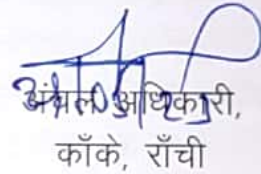 अंचल अधिकारी,
काँके, राँची